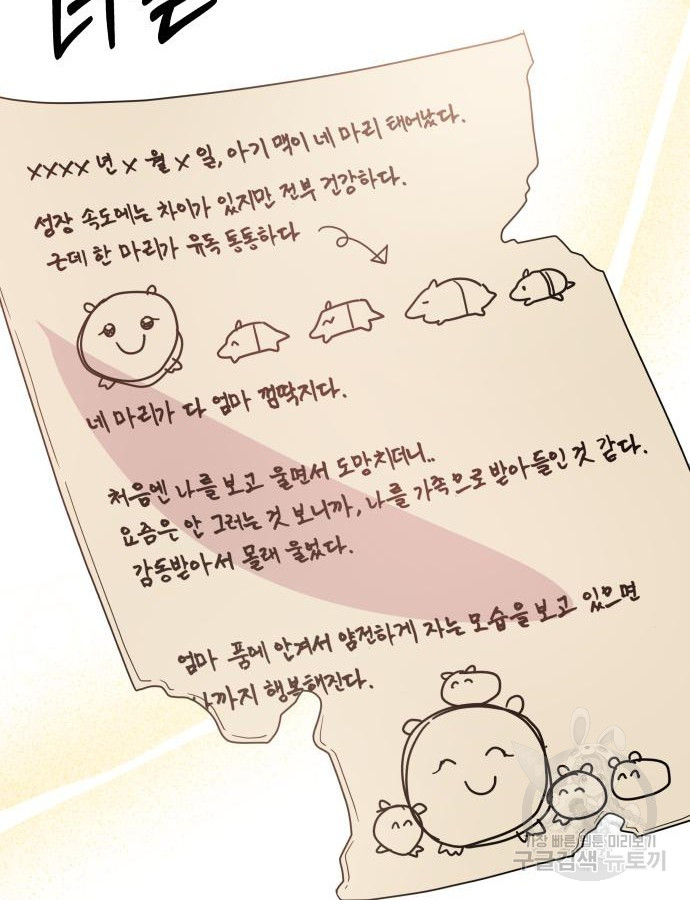 xxxx년 x월 x일, 아기 맥이 네 마리 태어났다.
성장 속도에는 차이가 있지만 전부 건강하다.
근데 한 마리가 유독 통통하다
네 마리가 다 엄마 껌딱지다.
처음엔 나를 보고 울면서 도망치더니..
요즘은 안 그러는 것 보니까, 나를 가족으로 받아들인 것 같다.
감동받아서 몰래 울었다.
엄마 품에 안겨서 얌전하게 자는 모습을 보고 있으면
까지 행복해진다.
가장 빠른 웹툰 미리보기
구글검색 뉴토끼